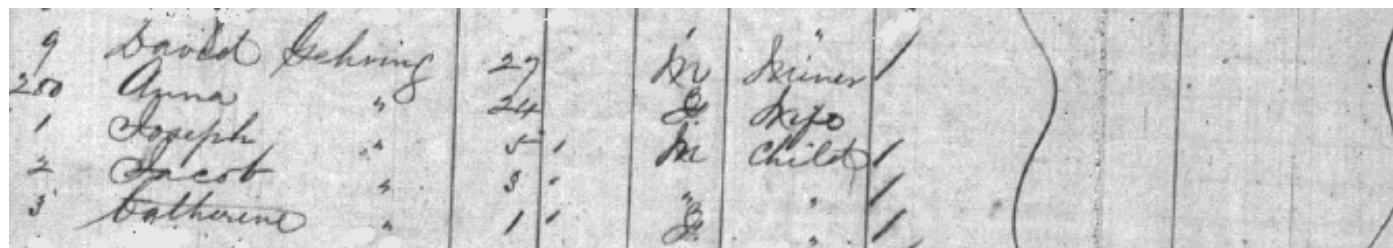 9 David Gehring 27 M Miner /
200 Anna " 24 F Wife
1 Joseph " 5 ' M Child /
2 Jacob " 3 ' " " /
3 Catherine " 1 ' F " /